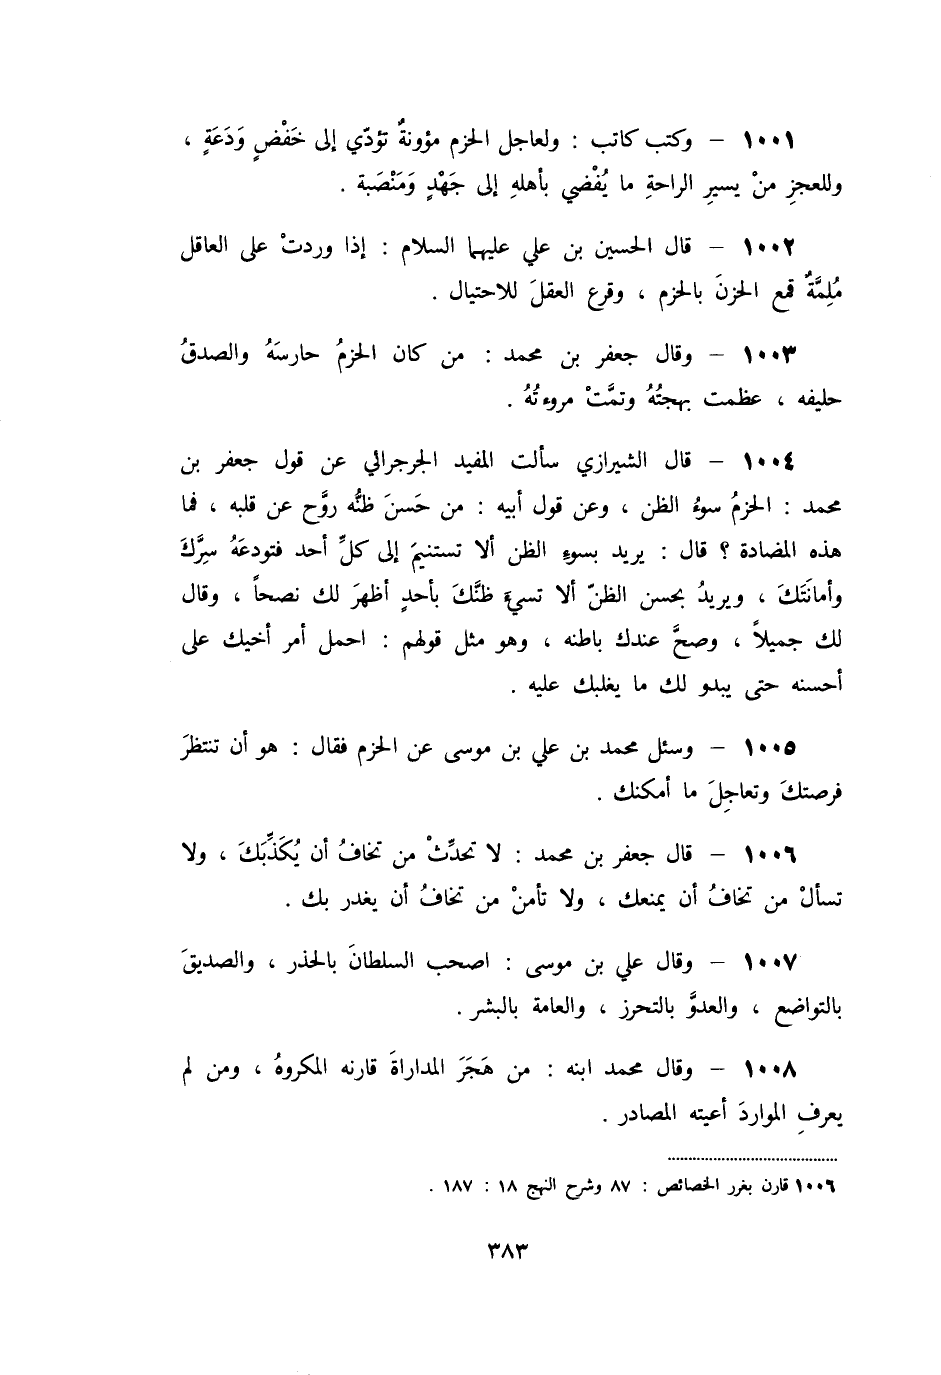 ١٠٠١ – وكتب كاتب : ولعاجل الحزم مؤونةٌ تؤدّي إلى خَفْضٍ وَدَعَةٍ ،
وللعجزِ منْ يسيرِ الراحةِ ما يُفْضي بأهلهِ إلى جَهْدٍ وَمَنْصَبة .
١٠٠٢ – قال الحسين بن علي عليهما السلام : إذا وردتْ على العاقل
مُلِمَّةٌ قمع الحزنَ بالحزم ، وقرع العقلَ للاحتيال .
١٠٠٣ – وقال جعفر بن محمد : من كان الحزمُ حارسَهُ والصدقُ
حليفه ، عظمت بهجتُهُ وتمَّتْ مروءتُهُ .
١٠٠٤ – قال الشيرازي سألت المفيد الجرجرالي عن قول جعفر بن
محمد : الحزمُ سوءُ الظن ، وعن قول أبيه : من حَسنَ ظنُّه روَّح عن قلبه ، فما
هذه المضادة ؟ قال : يريد بسوءِ الظن ألا تستنيمَ إلى كلِّ أحد فتودعَهُ سِرَّكَ
وأمانَتَكَ ، ويريدُ بحسن الظنّ ألا تسيءَ ظنَّكَ بأحدٍ أظهرَ لك نصحاً ، وقال
لك جميلاً ، وصحَّ عندك باطنه ، وهو مثل قولهم : احمل أمر أخيك على
أحسنه حتى يبدو لك ما يغلبك عليه .
١٠٠٥ – وسئل محمد بن علي بن موسى عن الحزم فقال : هو أن تنتظرَ
فرصتكَ وتعاجِلَ ما أمكنك .
١٠٠٦ – قال جعفر بن محمد : لا تحدِّثْ من تخافُ أن يُكَذِّبَكَ ، ولا
تسألْ من تخافُ أن يمنعك ، ولا تأمنْ من تخافُ أن يغدر بك .
١٠٠٧ – وقال علي بن موسى : اصحب السلطانَ بالحذر ، والصديقَ
بالتواضع ، والعدوَّ بالتحرز ، والعامة بالبشر .
١٠٠٨ – وقال محمد ابنه : من هَجَرَ المداراةَ قارنه المكروهُ ، ومن لم
يعرفِ المواردَ أعيته المصادر .
١٠٠٦ قارن بغرر الخصائص : ٨٧ وشرح النهج ١٨ : ١٨٧ .
٣٨٣